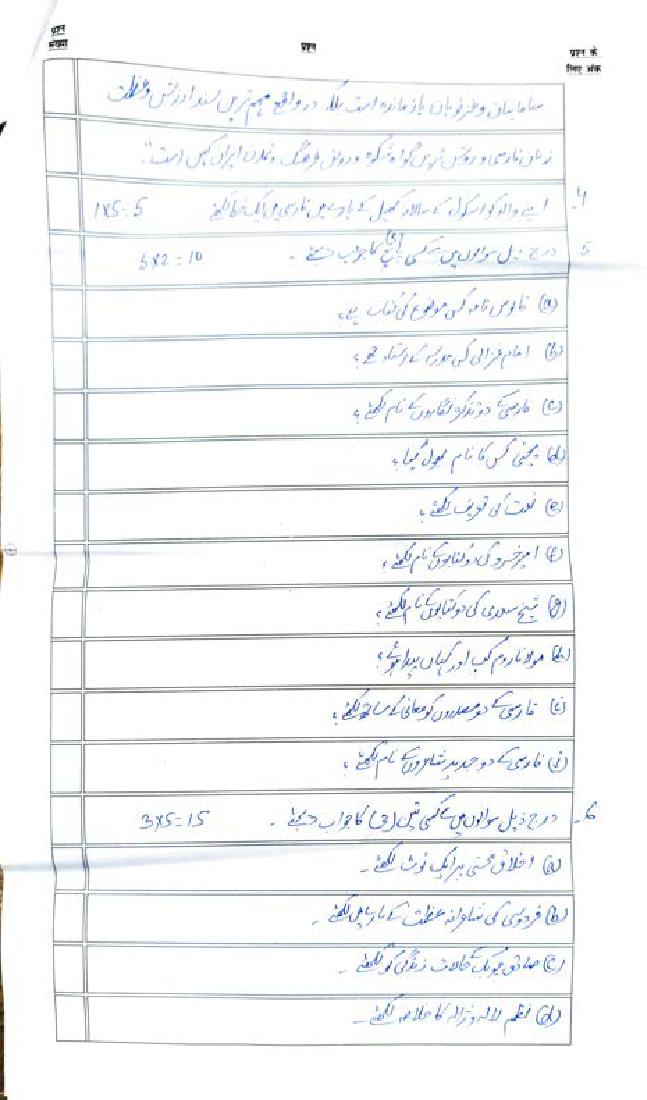 प्रश्न संख्या
प्रश्न
प्रश्न के लिए अंक
و طرفوبان باز مانده است بلکہ در واقع مہم ترین سند ارزش و عظمت
زبان فارسی و روشن ترین گواہ شکوہ و رونق فرہنگ و تمدن ایران کہن است".
4. اپنے والد کو اسکول کے سالانہ کھیل کے بارے میں فارسی میں ایک خط لکھئے 1x5=5
5. درج ذیل سوالوں میں سے کسی پانچ (5) کا جواب دیجئے۔ 5x2=10
(a) قابوس نامہ کس موضوع کی کتاب ہے؟
(b) امام غزالی کس مدرسہ کے استاد تھے؟
(c) فارسی کے دو تذکرہ نگاروں کے نام لکھئے؟
(d) یحییٰ کس کا نام بھول گیا؟
(e) نعت کی تعریف لکھئے؟
(f) امیر خسرو کی دو کتابوں کے نام لکھئے؟
(g) شیخ سعدی کی دو کتابوں کے نام لکھئے؟
(h) مولانا روم کب اور کہاں پیدا ہوئے؟
(i) فارسی کے دو مصدروں کو معانی کے ساتھ لکھئے؟
(j) فارسی کے دو جدید شاعروں کے نام لکھئے؟
6. درج ذیل سوالوں میں سے کسی تین (3) کا جواب دیجئے۔ 3x5=15
(a) اخلاق محسنی پر ایک نوٹ لکھئے۔
(b) فردوسی کی شاعرانہ عظمت کے بارے میں لکھئے۔
(c) صادق چوبک کے حالات زندگی کو لکھئے۔
(d) نظم لالہ و ژالہ کا خلاصہ لکھئے۔